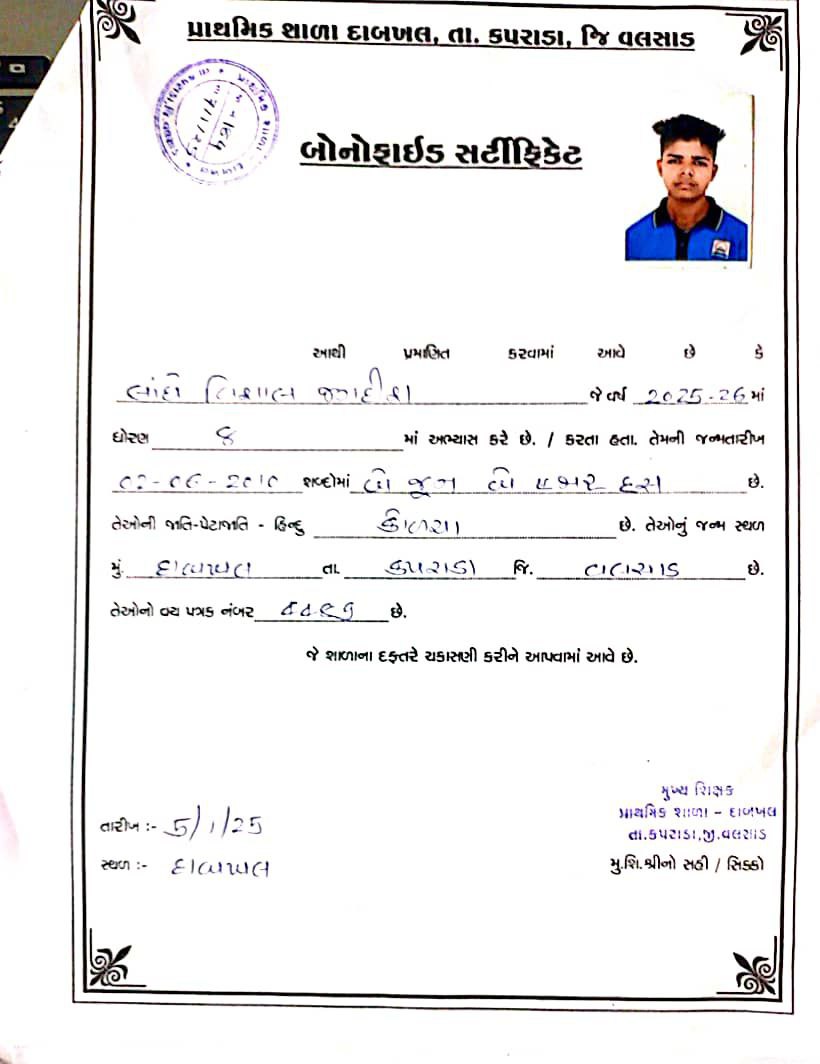 પ્રાથમિક શાળા દાબખલ, તા. કપરાડા, જિ વલસાડ
બોનોફાઇડ સર્ટીફિકેટ
આથી પ્રમાણિત કરવામાં આવે છે કે
જગદીશ જે વર્ષ 2025-26 માં
ધોરણ ૪ માં અભ્યાસ કરે છે. / કરતા હતા. તેમની જન્મતારીખ
02-06-2010 શબ્દોમાં બે જૂન બે હજાર દસ છે.
તેઓની જાતિ-પેટાજાતિ - હિન્દુ છે. તેઓનું જન્મ સ્થળ
મું. દાબખલ તા. કપરાડા જિ. વલસાડ છે.
તેઓનો વય પત્રક નંબર છે.
જે શાળાના દફતરે ચકાસણી કરીને આપવામાં આવે છે.
મુખ્ય શિક્ષક
પ્રાથમિક શાળા - દાબખલ
તારીખ :- 5/1/25
તા.કપરાડા,જી.વલસાડ
સ્થળ :- દાબખલ
મુ.શિ.શ્રીનો સહી / સિક્કો